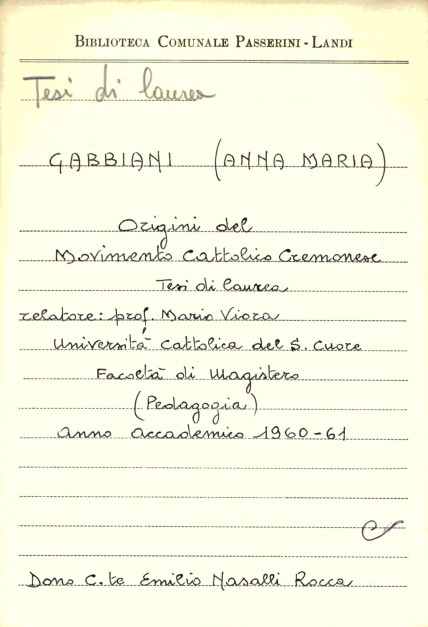 BIBLIOTECA COMUNALE PASSERINI-LANDI
Tesi di laurea
GABBIANI (ANNA MARIA)
Origini del
Movimento Cattolico Cremonese
Tesi di laurea
relatore: prof. Mario Viora
Università Cattolica del S. Cuore
Facoltà di Magistero
(Pedagogia)
Anno accademico 1960-61
Dono C.te Emilio Nasalli Rocca